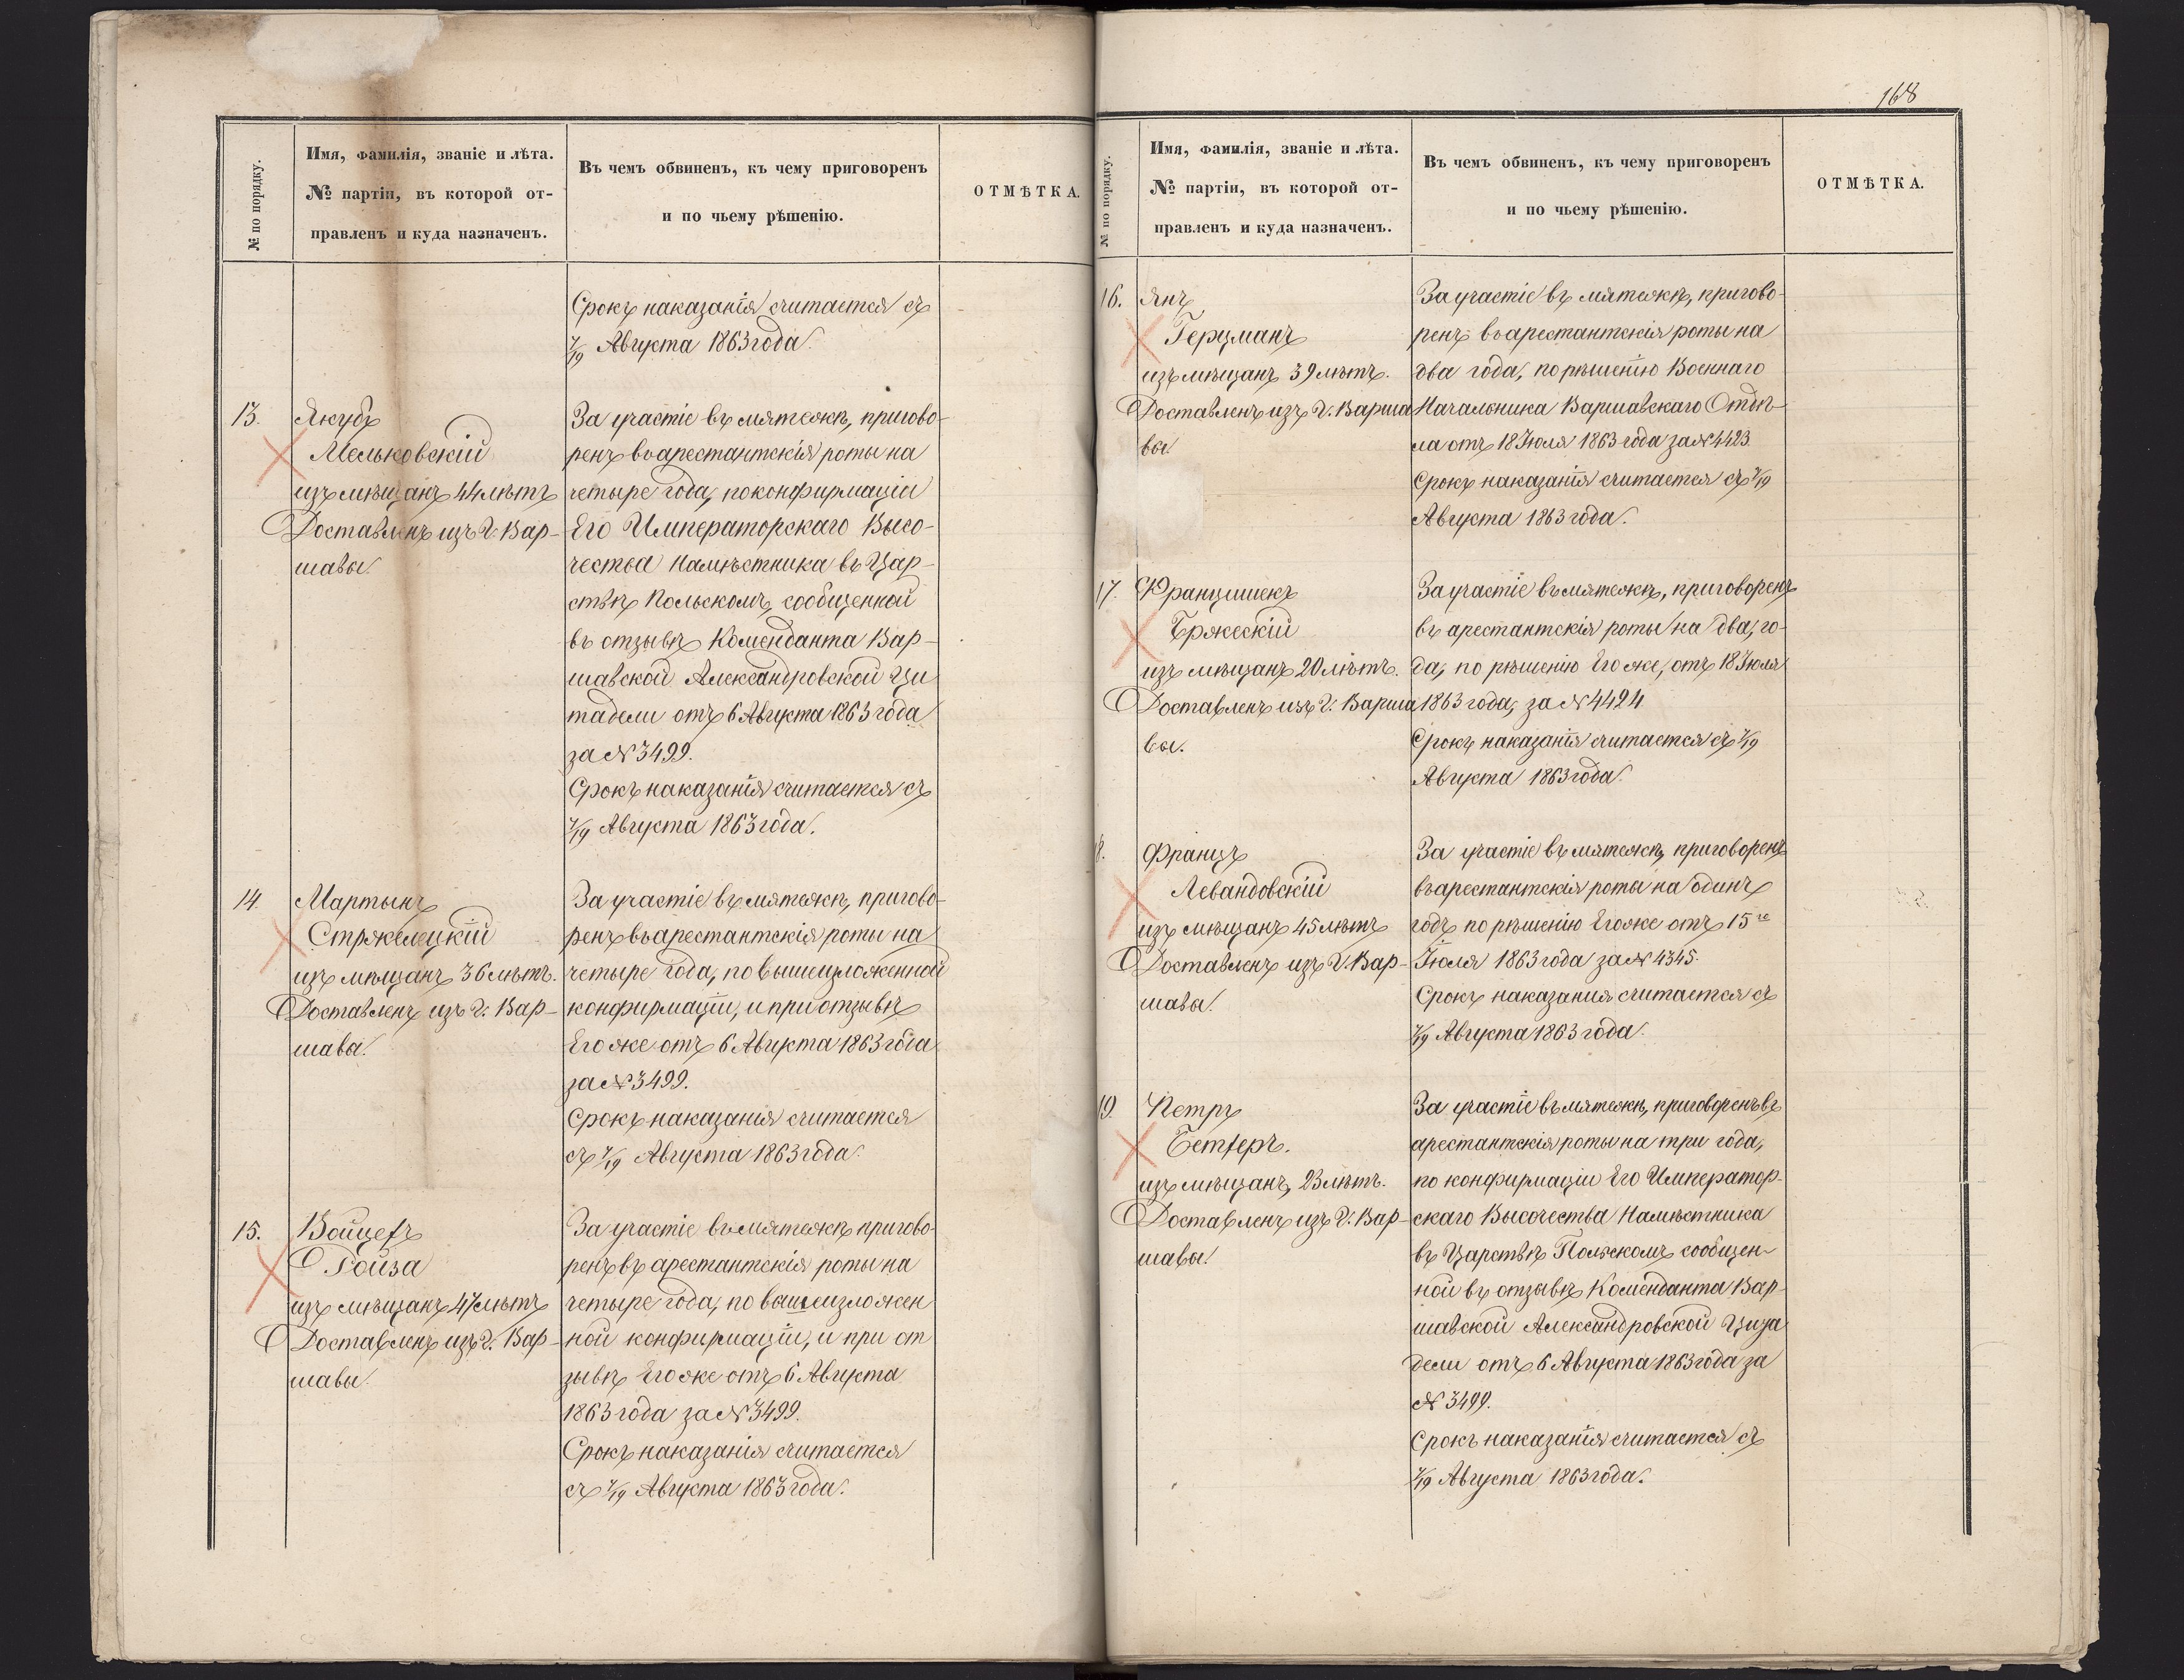 № по порядку.
Имя, фамилія, званіе и лѣта.
№ партіи, въ которой от-
правленъ и куда назначенъ.
Въ чемъ обвиненъ, къ чему приговоренъ
и по чьему рѣшенію.
ОТМѢТКА.
Срокъ наказанія считается съ
7/19 Августа 1863 года.
13.
Якубъ
Мельковскій
изъ мѣщанъ 44 лѣтъ
Доставленъ изъ г. Вар-
шавы.
За участіе въ мятежѣ, пригово-
ренъ въ арестантскія роты на
четыре года, по конфирмаціи
Его Императорскаго Высо-
чества Намѣстника въ Цар-
ствѣ Польскомъ, сообщенной
въ отзывѣ Коменданта Вар-
шавской Александровской Ци
тадели отъ 6 Августа 1863 года
за № 3499.
Срокъ наказанія считается съ
7/19 Августа 1863 года.
14.
Мартынъ
Стржелецкій
изъ мѣщанъ 36 лѣтъ.
Доставленъ изъ г. Вар-
шавы.
За участіе въ мятежѣ, пригово-
ренъ въ арестантскія роты на
четыре года, по вышеизложенной
конфирмаціи, и при отзывѣ
Его же отъ 6 Августа 1863 года
за № 3499.
Срокъ наказанія считается
съ 7/19 Августа 1863 года.
15.
Войцехъ
Гойза
изъ мѣщанъ 47 лѣтъ
Доставленъ изъ г. Вар-
шавы.
За участіе въ мятежѣ пригово-
ренъ въ арестантскія роты на
четыре года, по вышеизложен
ной конфирмаціи, и при от
зывѣ Его же отъ 6 Августа
1863 года за № 3499.
Срокъ наказанія считается
съ 7/19 Августа 1863 года.
168
№ по порядку.
Имя, фамилія, званіе и лѣта.
№ партіи, въ которой от-
правленъ и куда назначенъ.
Въ чемъ обвиненъ, къ чему приговоренъ
и по чьему рѣшенію.
ОТМѢТКА.
16.
Янъ
Герцманъ
изъ мѣщанъ 39 лѣтъ.
Доставленъ изъ г. Варша
вы.
За участіе въ мятежѣ, пригово-
ренъ въ арестантскія роты на
два года, по рѣшенію Военнаго
Начальника Варшавскаго Отдѣ-
ла отъ 18 Іюля 1863 года за № 4423
Срокъ наказанія считается съ 7/19
Августа 1863 года.
17.
Францишекъ
Бржескій
изъ мѣщанъ 20 лѣтъ.
Доставленъ изъ г. Варша
вы.
За участіе въ мятежѣ, приговоренъ
въ арестантскія роты на два го-
да, по рѣшенію Его же, отъ 18 Іюля
1863 года, за № 4424
Срокъ наказанія считается съ 7/19
Августа 1863 года.
8.
Францъ
Левандовскій
изъ мѣщанъ 45 лѣтъ
Доставленъ изъ г. Вар-
шавы.
За участіе въ мятежѣ, приговоренъ
въ арестантскія роты на одинъ
годъ по рѣшенію Его же отъ 15го
Іюля 1863 года за № 4345.
Срокъ наказания считается съ
7/19 Августа 1863 года.
19
Петръ
Бетхеръ.
изъ мѣщанъ, 23 лѣтъ.
Доставленъ изъ г. Вар-
шавы.
За участіе въ мятежѣ, приговоренъ въ
арестантскія роты на три года,
по конфирмаціи Его Император-
скаго Высочества Намѣстника
въ Царствѣ Польскомъ сообщен-
ной въ отзывѣ Коменданта Вар-
шавской Александровской Цита
дели отъ 6 Августа 1863 года за
№ 3499.
Срокъ наказанія считается съ
7/19 Августа 1863 года.